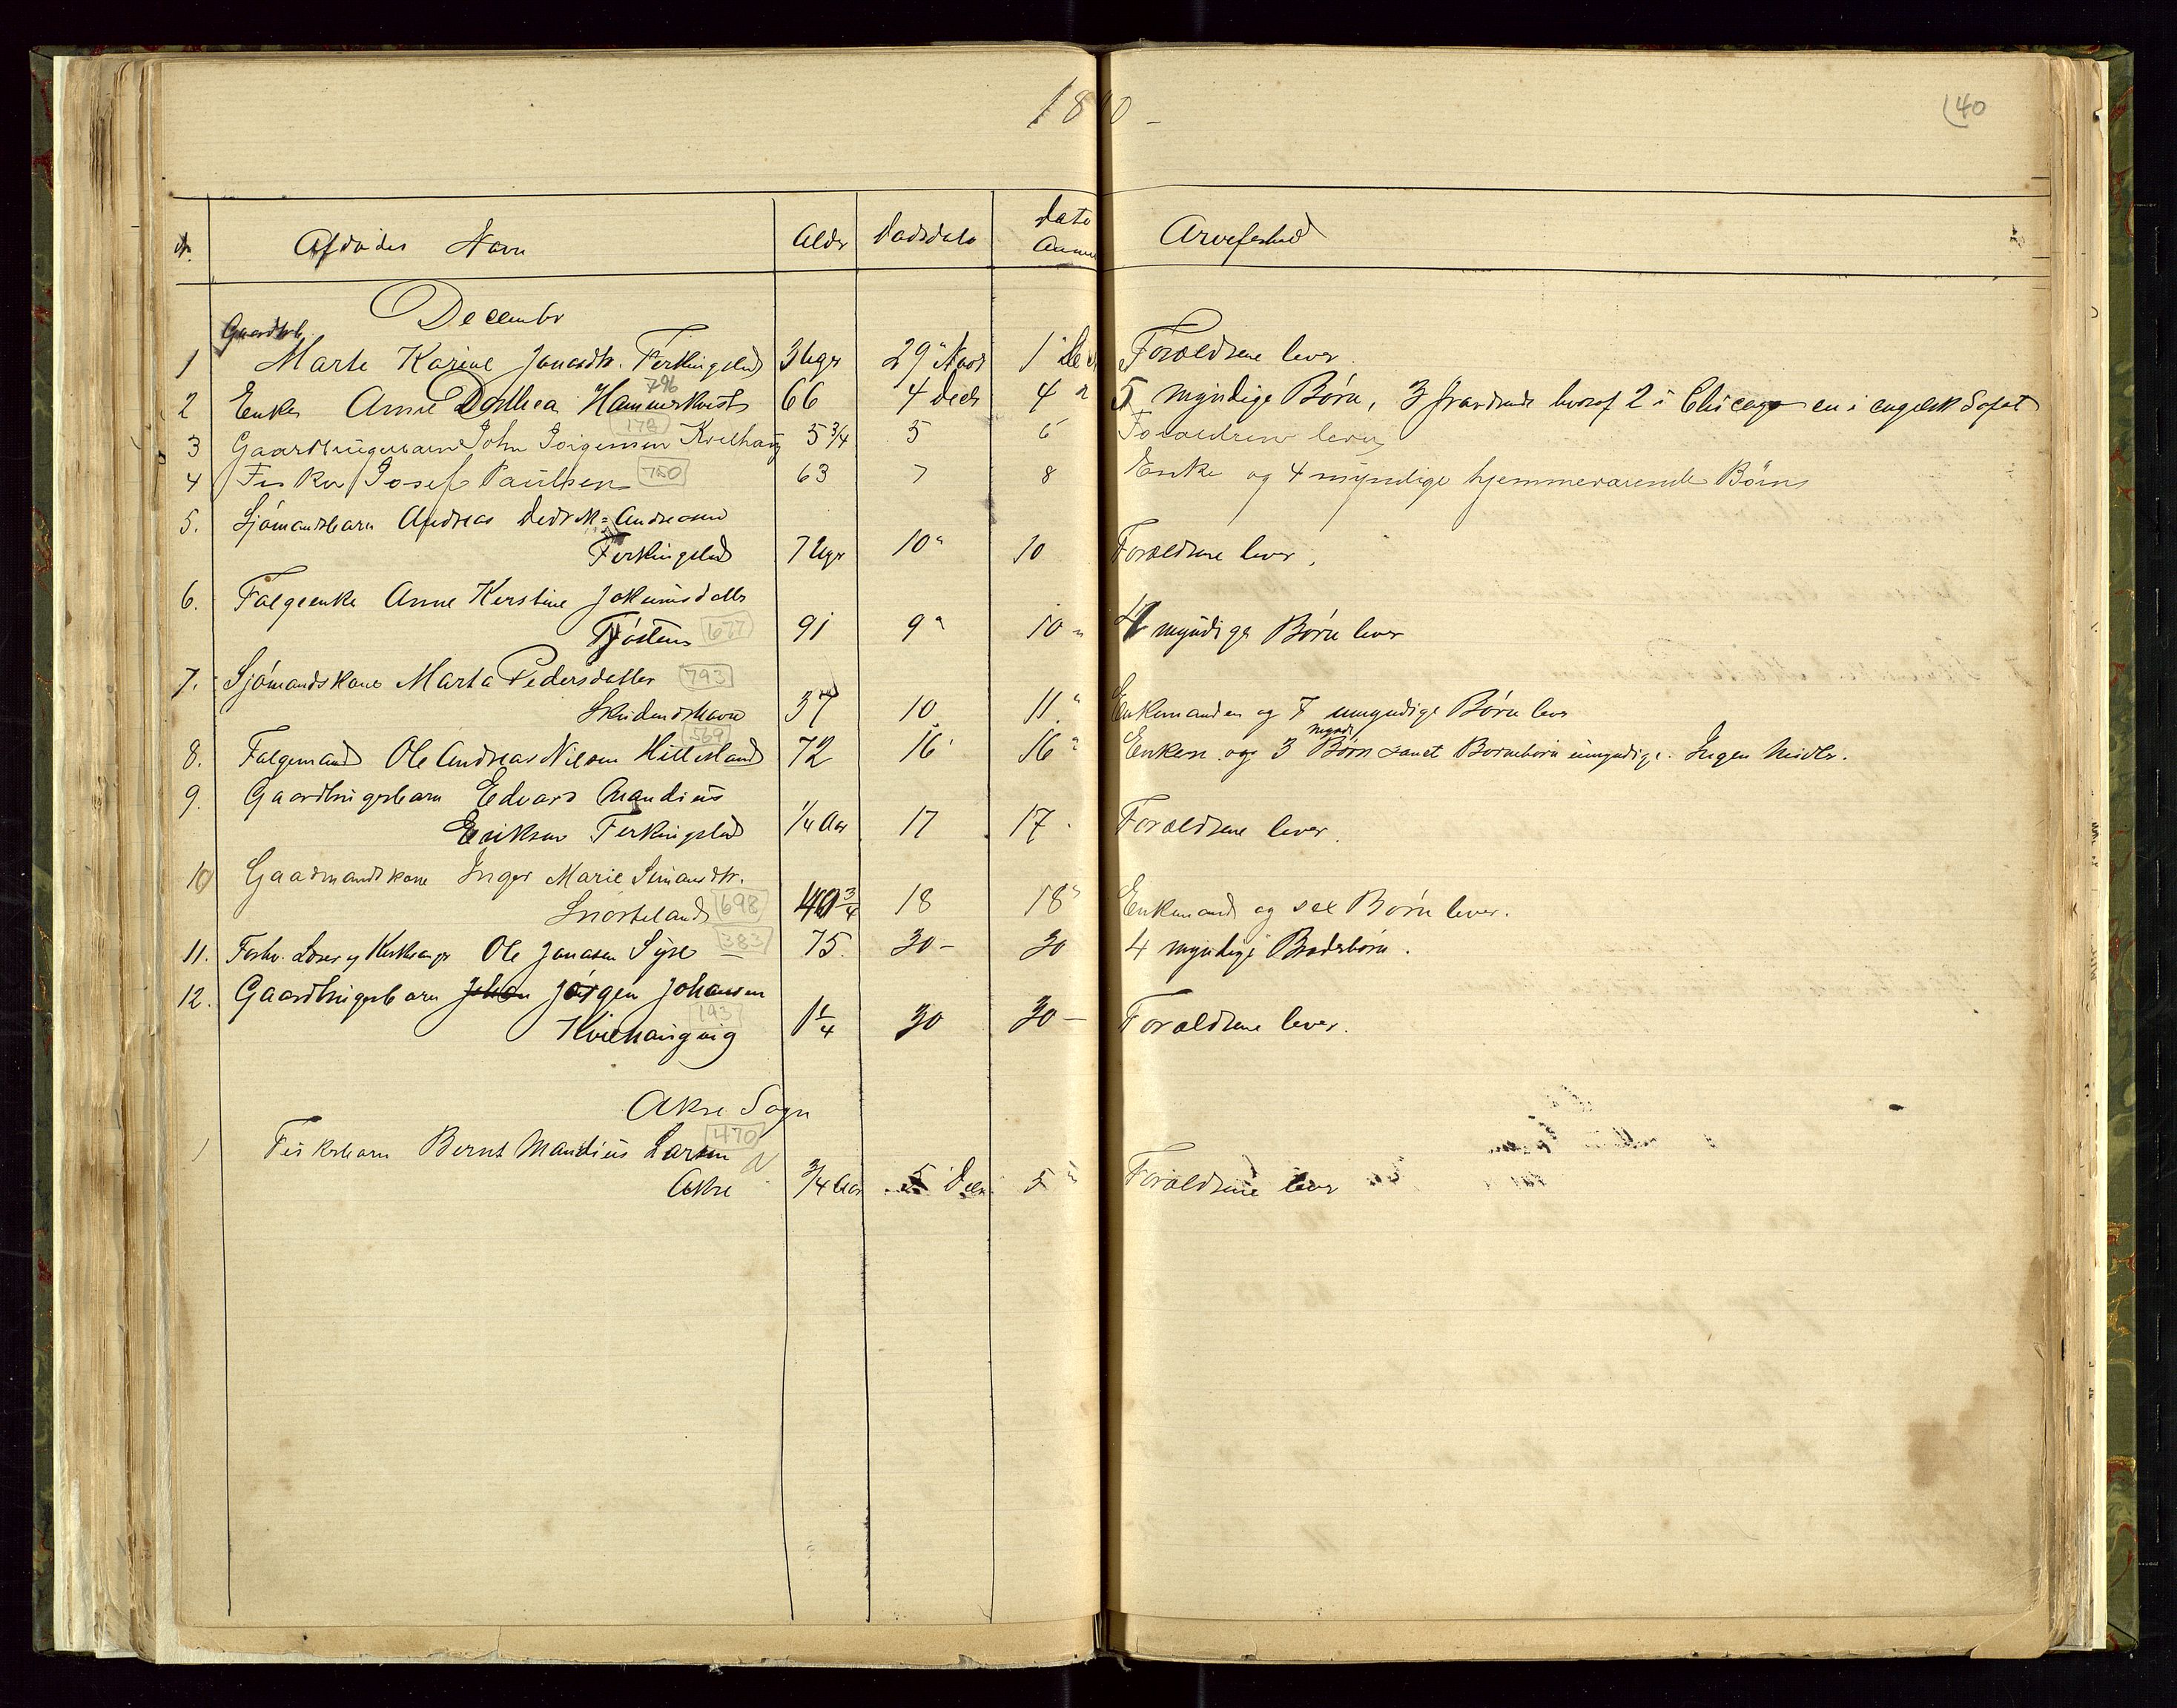 40
Afdødes Navn Alder Dødsdato Dato Arvefeshed
December
Gaardbrb.
1 Marte Karine Jonasdtr. Ferkingstad 3 Uger 29" Novb 1" Dec Forældrene lever
796
2 Enke Anne Dorthea Hammerkvist 66 4 Decb 4 " 5 myndige Børn, 3 fraværende hvoraf 2 i Chicago en i engelsk Sofart
178
3 Gaardbrugerbarn John Jørgensen Kvelhaug 5 3/4 5 6 Forældrene lever
4 Fisker Josef Paulsen 750 63 7 8 Enke og 4 myndige hjemmeværende Børn
5. Sjømandsbarn Andreas Dedrik Andreasen
Ferkingstad 7 Uger 10" 10 Forældrene lever.
6. Falgeenke Anne Kerstine Jokumsdatter
Tjøsteim 677 91 9" 10 " 4 myndige Børn lever
7. Sjømandskone Marta Pedersdatter 793
Skudenshavn 37 10 11." Enkemanden og 7 umyndige Børn lever
569 mynd
8. Falgemand Ole Andreas Nilsen Hillesland 72 16 16 " Enken og 3 Børn samt Børnebørn umyndige. Ingen Midler.
9. Gaardbrugerbarn Edvard Mandius
Eriksen Ferkingstad 1/4 Aar 17 17. Forældrene lever.
10 Gaardmandskone Inger Marie Simonsdtr.
Snørteland 698 40 3/4 18 18" Enkemand og sex Børn lever.
11. Forhv. Lærer og Kirkesanger Ole Jonasen Syre 383 75. 30 - 30 4 myndige Broderbørn.
12. Gaardbrugerbarn Johan Jørgen Johansen
193
Kvelhaugvig 1 1/4 30 30 - Forældrene lever.
Akre Sogn
470
1 Fiskerbarn Bernt Mandius Larsen
Akre 3/4 Aar 5 Decb. 5 " Forældrene lever